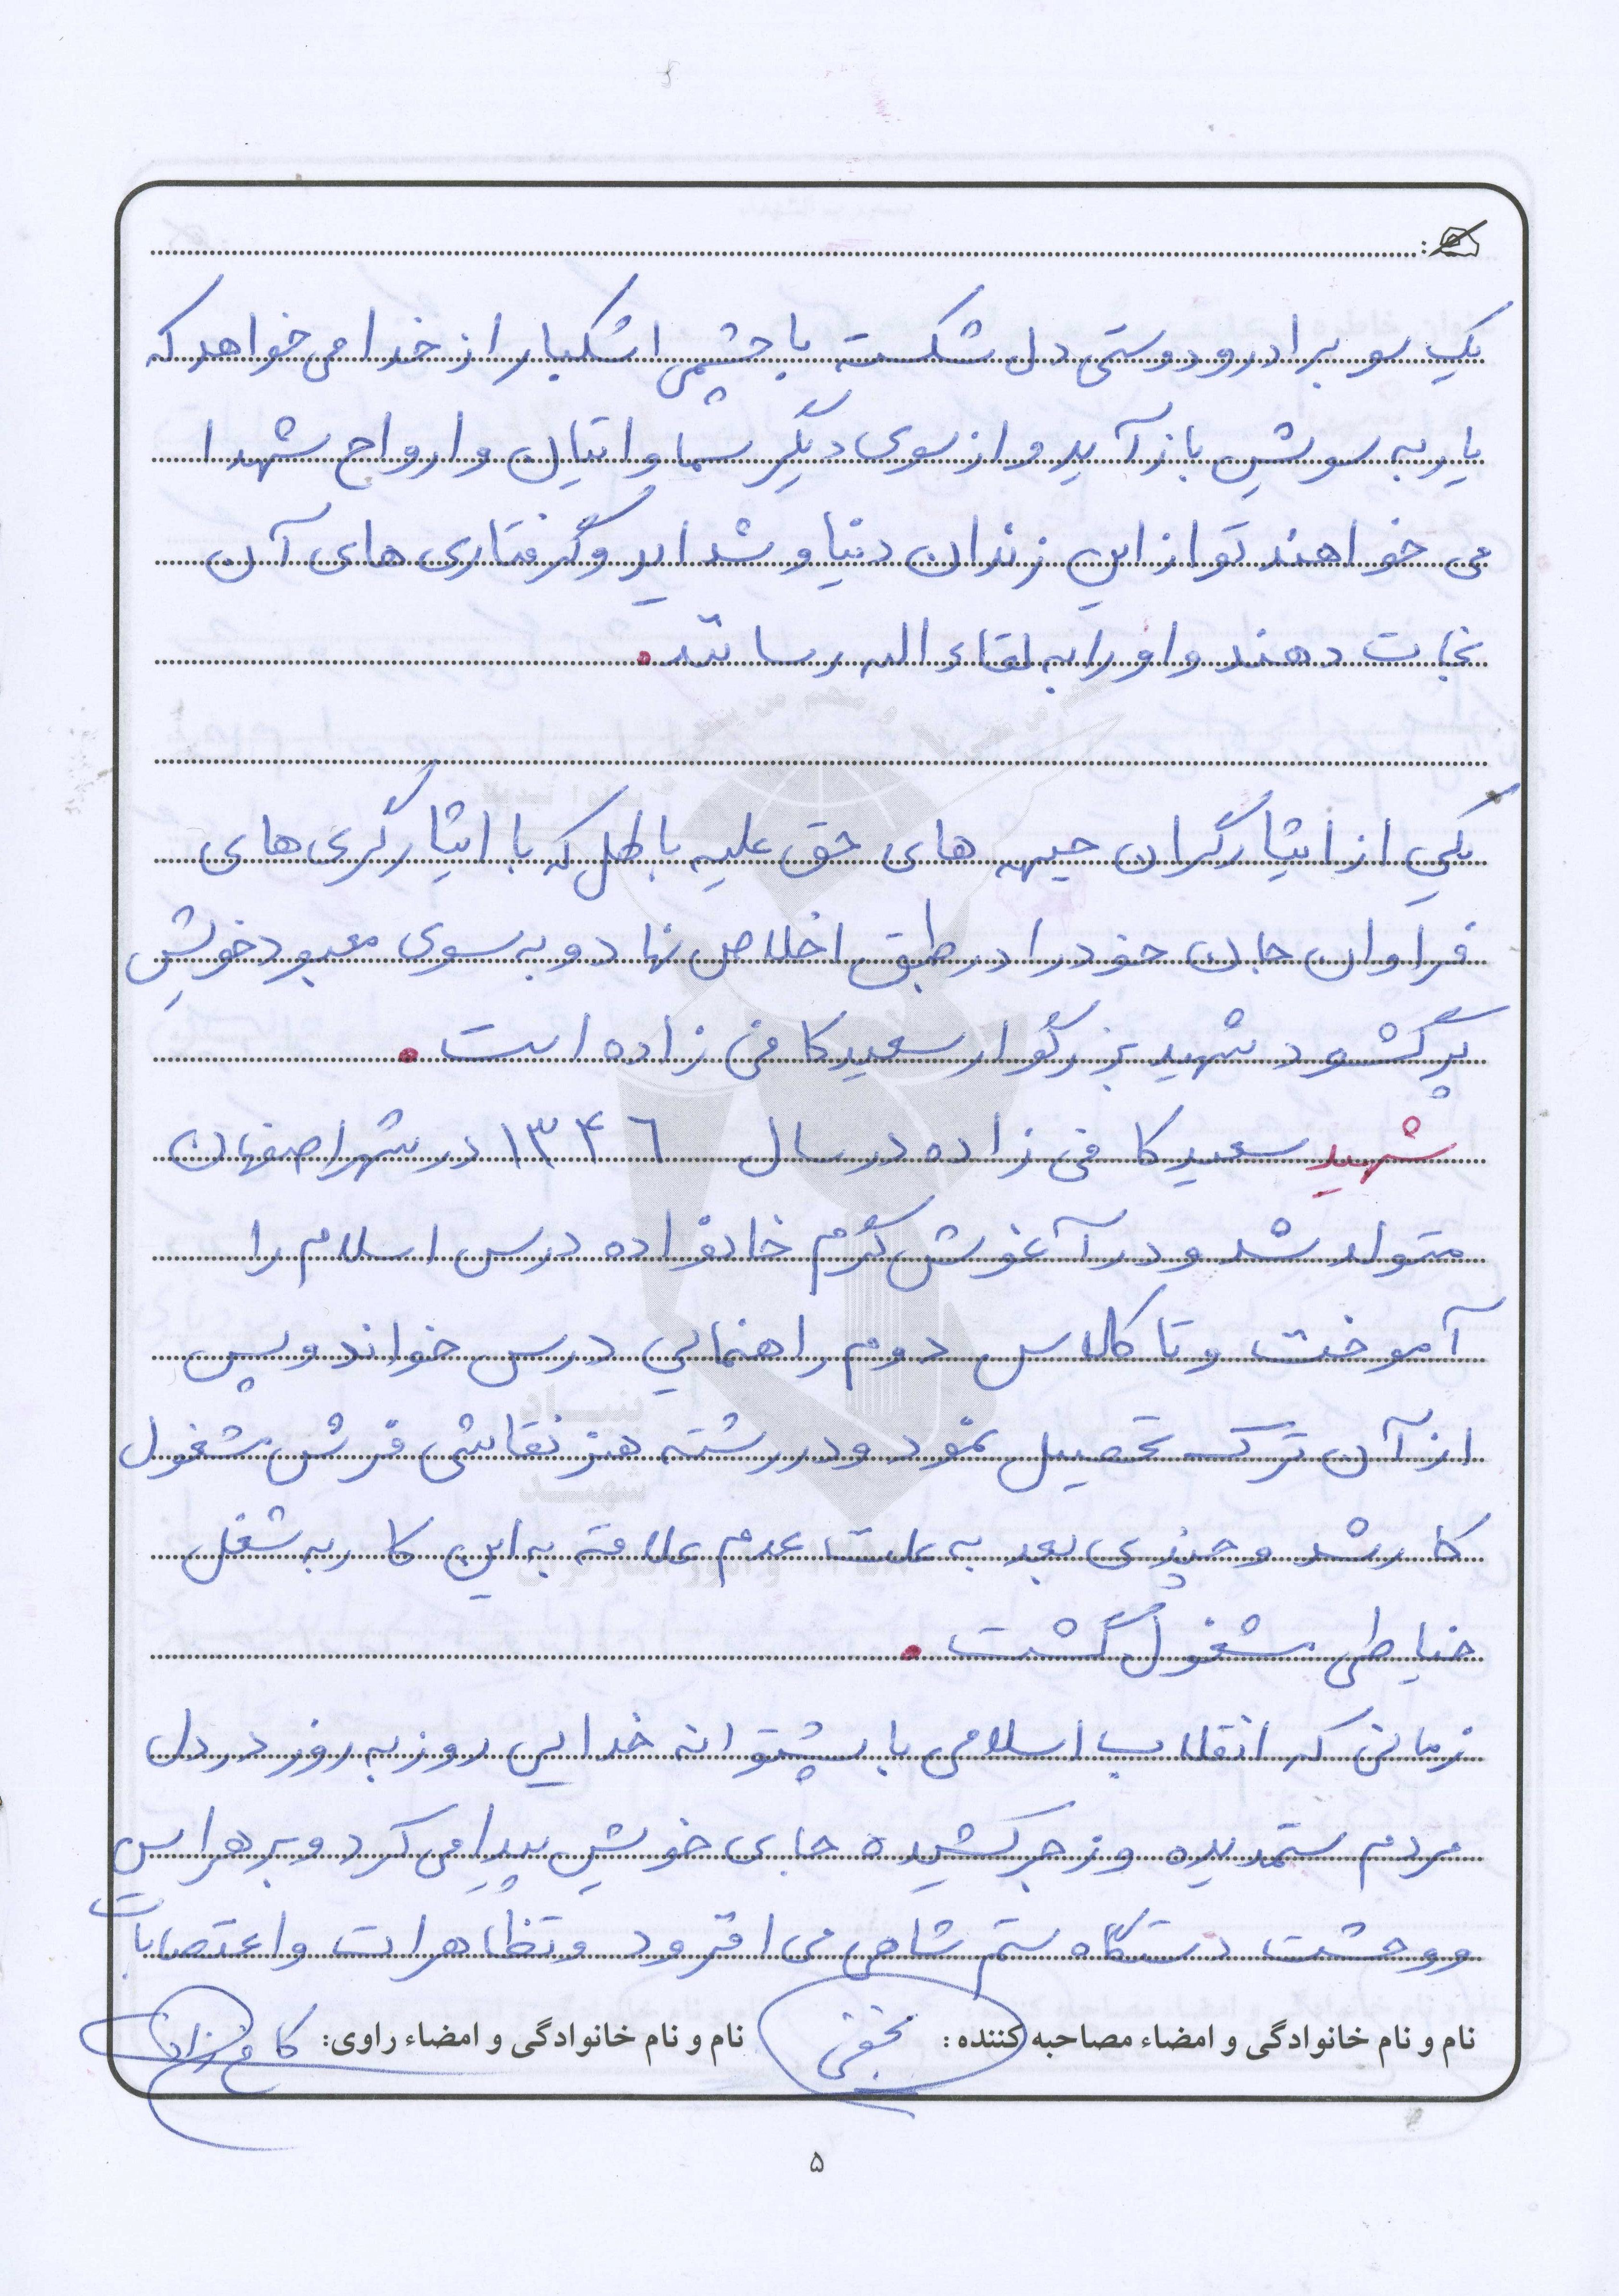 یک سو برادر و دوستی دل شکسته با چشمی اشکبار از خدا می خواهد که
یار به سویش باز آید و از سوی دیگر سماواتیان و ارواح شهدا
می خواهند تو از این زندان دنیا و شداید و گرفتاری های آن
نجات دهند و او را به لقاء الله رسانند.
یکی از ایثارگران جبهه های حق علیه باطل که با ایثارگری های
فراوان جان خود را در طبق اخلاص نهاد و به سوی معبود خویش
پر گشود شهید بزرگوار سعید کافی زاده است.
شهید سعید کافی زاده در سال ۱۳۴۶ در شهر اصفهان
متولد شد و در آغوش گرم خانواده درس اسلام را
آموخت و تا کلاس دوم راهنمایی درس خواند و پس
از آن ترک تحصیل نمود و در رشته هنر نقاشی فرش مشغول
کار شد و چندی بعد به علت عدم علاقه به این کار به شغل
خیاطی مشغول گشت.
زمانی که انقلاب اسلامی با پشتوانه خدایی روز به روز در دل
مردم ستمدیده و زجر کشیده جای خویش پیدا می کرد و بر هراس
و وحشت دستگاه ستم شاهی می افزود و تظاهرات و اعتصابات
نام و نام خانوادگی و امضاء مصاحبه کننده: نجفی نام و نام خانوادگی و امضاء راوی: کافی زاده
۵